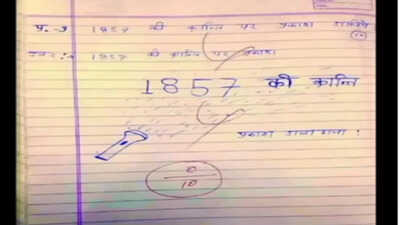 प्र.-9 1857 की क्रान्ति पर प्रकाश डालिये
(10)
उत्तर:- 1857 की क्रान्ति पर प्रकाश।
1857 की क्रान्ति
प्रकाश डाला गया।
0
10